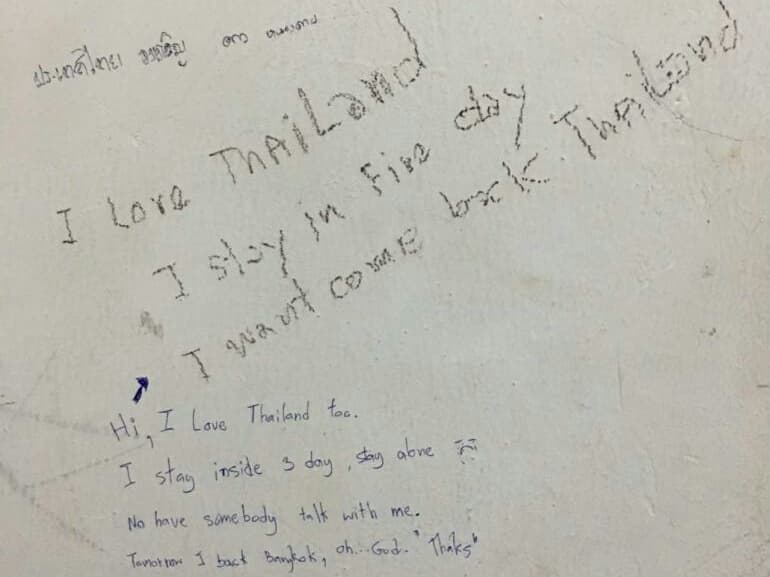 ประเทศไทย
I Love THAiLand
I stay in Five day
I want come back THAiLand
Hi, I Love Thailand too.
I stay inside 3 day, stay alone
No have somebody talk with me.
Tomorrow I back Bangkok, oh...God. "Thaks"